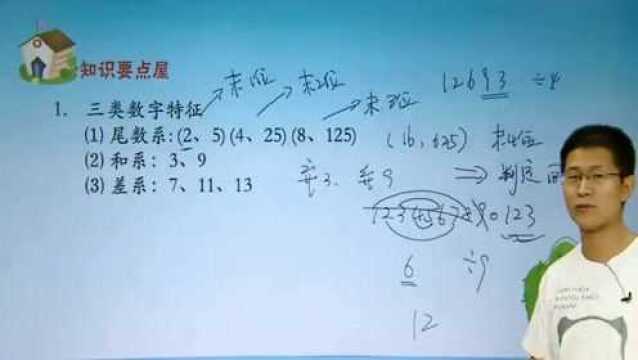 知识要点屋
末1位 末2位 末3位
12693 ÷4
1. 三类数字特征
(1) 尾数系:(2、5)(4、25)(8、125) (16,625) 末4位
(2) 和系：3、9 弃3、弃9 ⇒ 判定
(3) 差系：7、11、13
123
6 ÷9
12